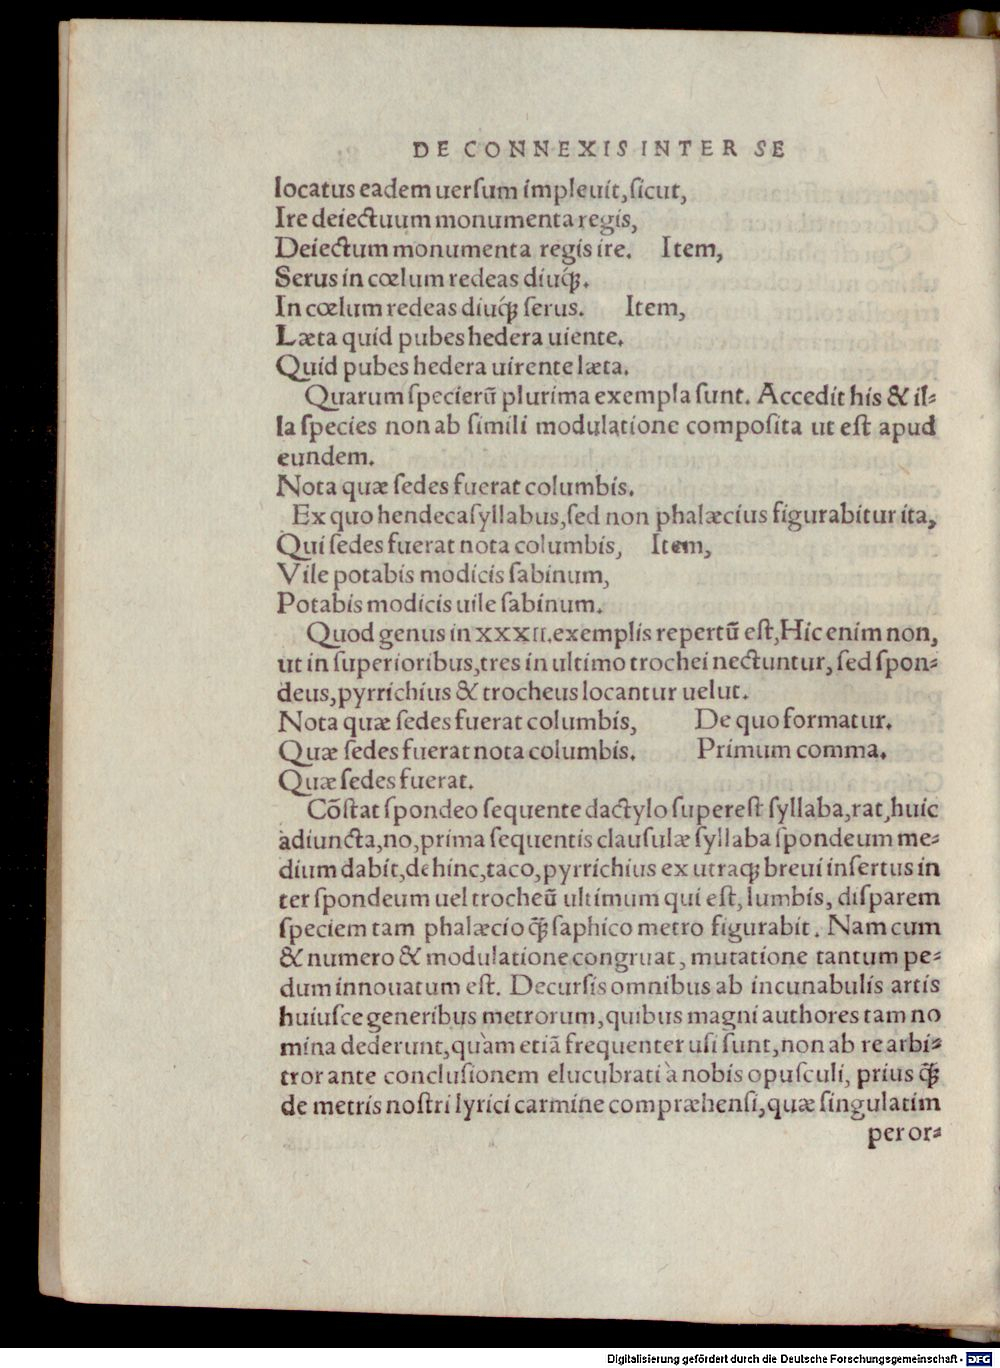 DE CONNEXIS INTER SE
locatus eadem uersum impleuit, sicut,
Ire deiectuum monumenta regis,
Deiectum monumenta regis ire. Item,
Serus in cœlum redeas diuq́ꝫ.
In cœlum redeas diuq́ꝫ serus. Item,
Læta quid pubes hedera uiente.
Quid pubes hedera uirente læta.
Quarum specierū plurima exempla sunt. Accedit his & il-
la species non ab simili modulatione composita ut est apud
eundem.
Nota quæ sedes fuerat columbis.
Ex quo hendecasyllabus, sed non phalæcius figurabitur ita,
Qui sedes fuerat nota columbis, Item,
Vile potabis modicis sabinum,
Potabis modicis uile sabinum.
Quod genus in XXXII. exemplis repertū est, Hic enim non,
ut in superioribus, tres in ultimo trochei nectuntur, sed spon-
deus, pyrrichius & trocheus locantur uelut.
Nota quæ sedes fuerat columbis, De quo formatur.
Quæ sedes fuerat nota columbis. Primum comma.
Quæ sedes fuerat.
Cōstat spondeo sequente dactylo superest syllaba, rat, huic
adiuncta, no, prima sequentis clausulæ syllaba spondeum me-
dium dabit, dehinc, taco, pyrrichius ex utraqꝫ breui insertus in
ter spondeum uel trocheū ultimum qui est, lumbis, disparem
speciem tam phalæcio q̄ꝫ saphico metro figurabit. Nam cum
& numero & modulatione congruat, mutatione tantum pe-
dum innouatum est. Decursis omnibus ab incunabulis artis
huiusce generibus metrorum, quibus magni authores tam no
mina dederunt, quàm etiā frequenter usi sunt, non ab re arbi-
tror ante conclusionem elucubrati à nobis opusculi, prius q̄ꝫ
de metris nostri lyrici carmine compræhensi, quæ singulatim
per or-
Digitalisierung gefördert durch die Deutsche Forschungsgemeinschaft - DFG